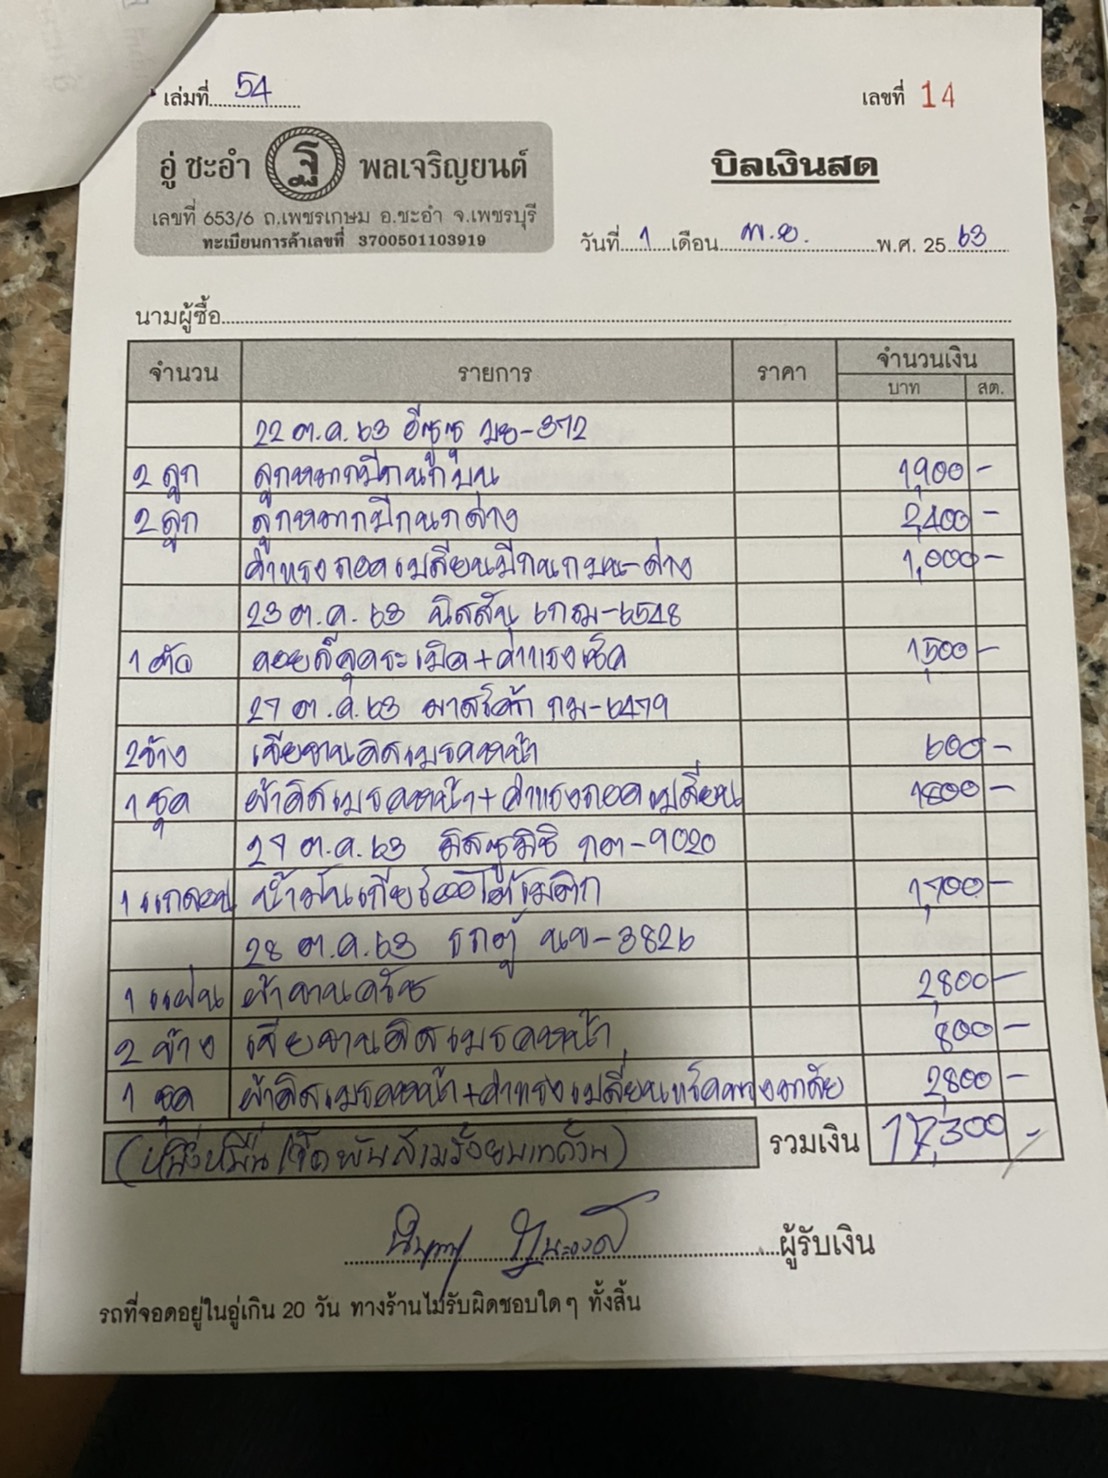 เล่มที่ 54 เลขที่ 14
อู่ ชะอำ ฐ พลเจริญยนต์
บิลเงินสด
เลขที่ 653/6 ถ.เพชรเกษม อ.ชะอำ จ.เพชรบุรี
ทะเบียนการค้าเลขที่ 3700501103919
วันที่ 1 เดือน พ.ย. พ.ศ. 25 63
นามผู้ซื้อ
จำนวน รายการ ราคา จำนวนเงิน
บาท สต.
22 ต.ค. 63 อีซูซุ มธ-372
2 ลูก ลูกหมากปีกนกบน 1,900 -
2 ลูก ลูกหมากปีกนกล่าง 2,400 -
ค่าแรงถอดเปลี่ยนปีกนกบน-ล่าง 1,000 -
23 ต.ค. 63 นิสสัน 6กฌ-6548
1 ตัว คอยล์จุดระเบิด+ค่าแรงเช็ค 1,500 -
27 ต.ค. 63 มาสด้า กม-6479
2ข้าง เจียจานดิสเบรคหน้า 600 -
1 ชุด ผ้าดิสเบรคหน้า+ค่าแรงถอดเปลี่ยน 1800 -
27 ต.ค. 63 มิตซูมิชิ กต-9020
1 แกลอน น้ำมันเกียร์ออโต้เมติก 1,700 -
28 ต.ค. 63 รถตู้ นข-3826
1 แผ่น ผ้าจานครัช 2,800 -
2 ข้าง เจียจานดิสเบรคหน้า 800 -
1 ชุด ผ้าดิสเบรคหน้า+ค่าแรงเปลี่ยน 2,800 -
(หนึ่งหมื่นเจ็ดพันสามร้อยบาทถ้วน) รวมเงิน 17,300 -
ผู้รับเงิน
รถที่จอดอยู่ในอู่เกิน 20 วัน ทางร้านไม่รับผิดชอบใดๆ ทั้งสิ้น